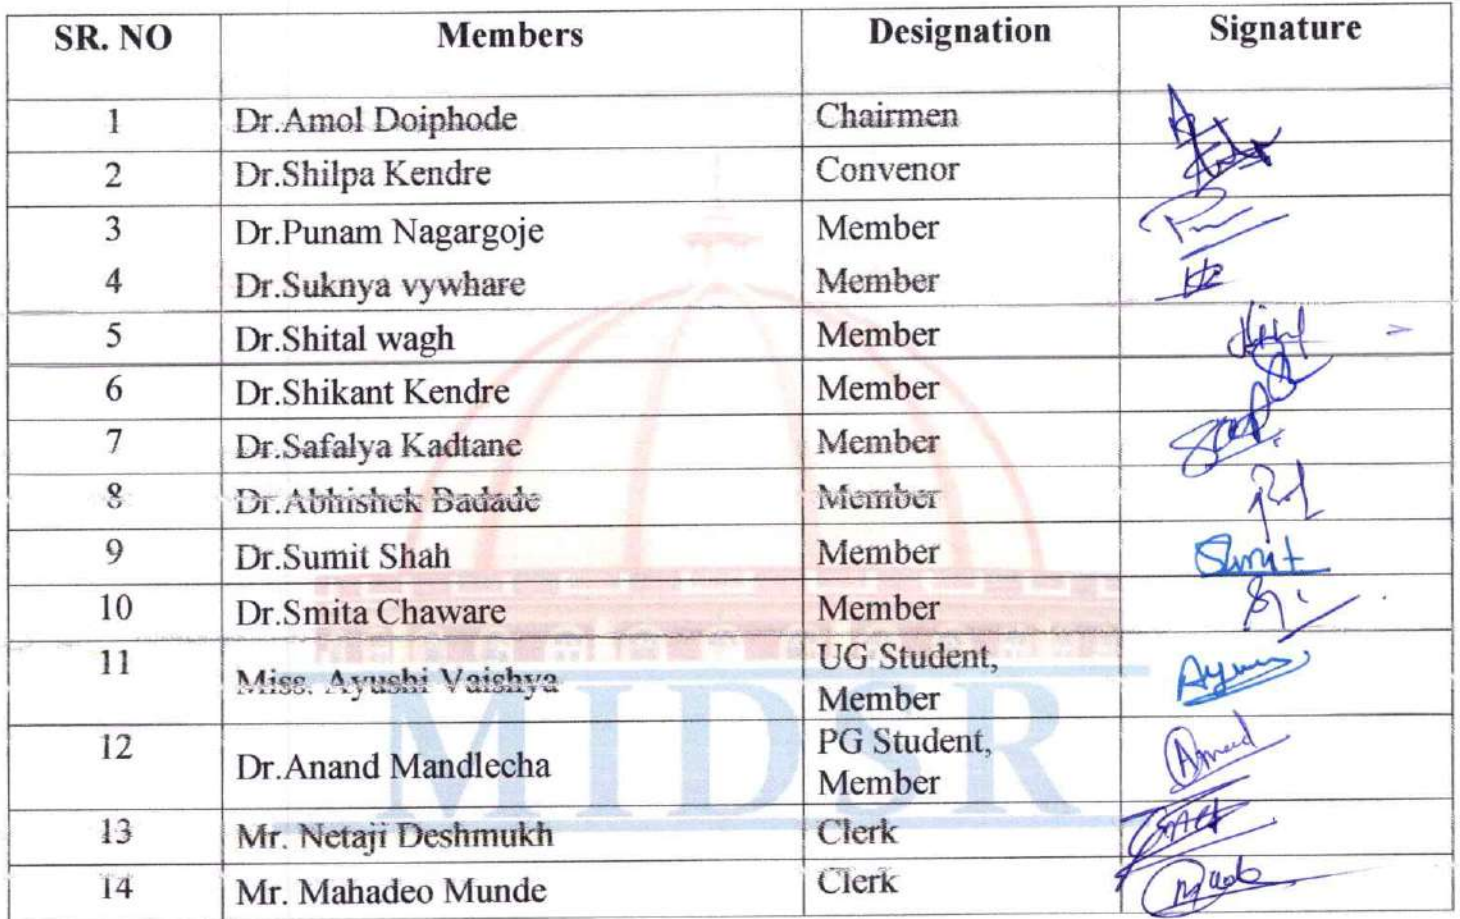 SR. NO Members Designation Signature
1 Dr.Amol Doiphode Chairmen
2 Dr.Shilpa Kendre Convenor
3 Dr.Punam Nagargoje Member
4 Dr.Suknya vywhare Member
5 Dr.Shital wagh Member
6 Dr.Shikant Kendre Member
7 Dr.Safalya Kadtane Member
8 Dr.Abhishek Badade Member
9 Dr.Sumit Shah Member Sumit
10 Dr.Smita Chaware Member
11 Miss. Ayushi Vaishya UG Student,
Member
12 Dr.Anand Mandlecha PG Student,
Member Anand
13 Mr. Netaji Deshmukh Clerk
14 Mr. Mahadeo Munde Clerk
MIDSR